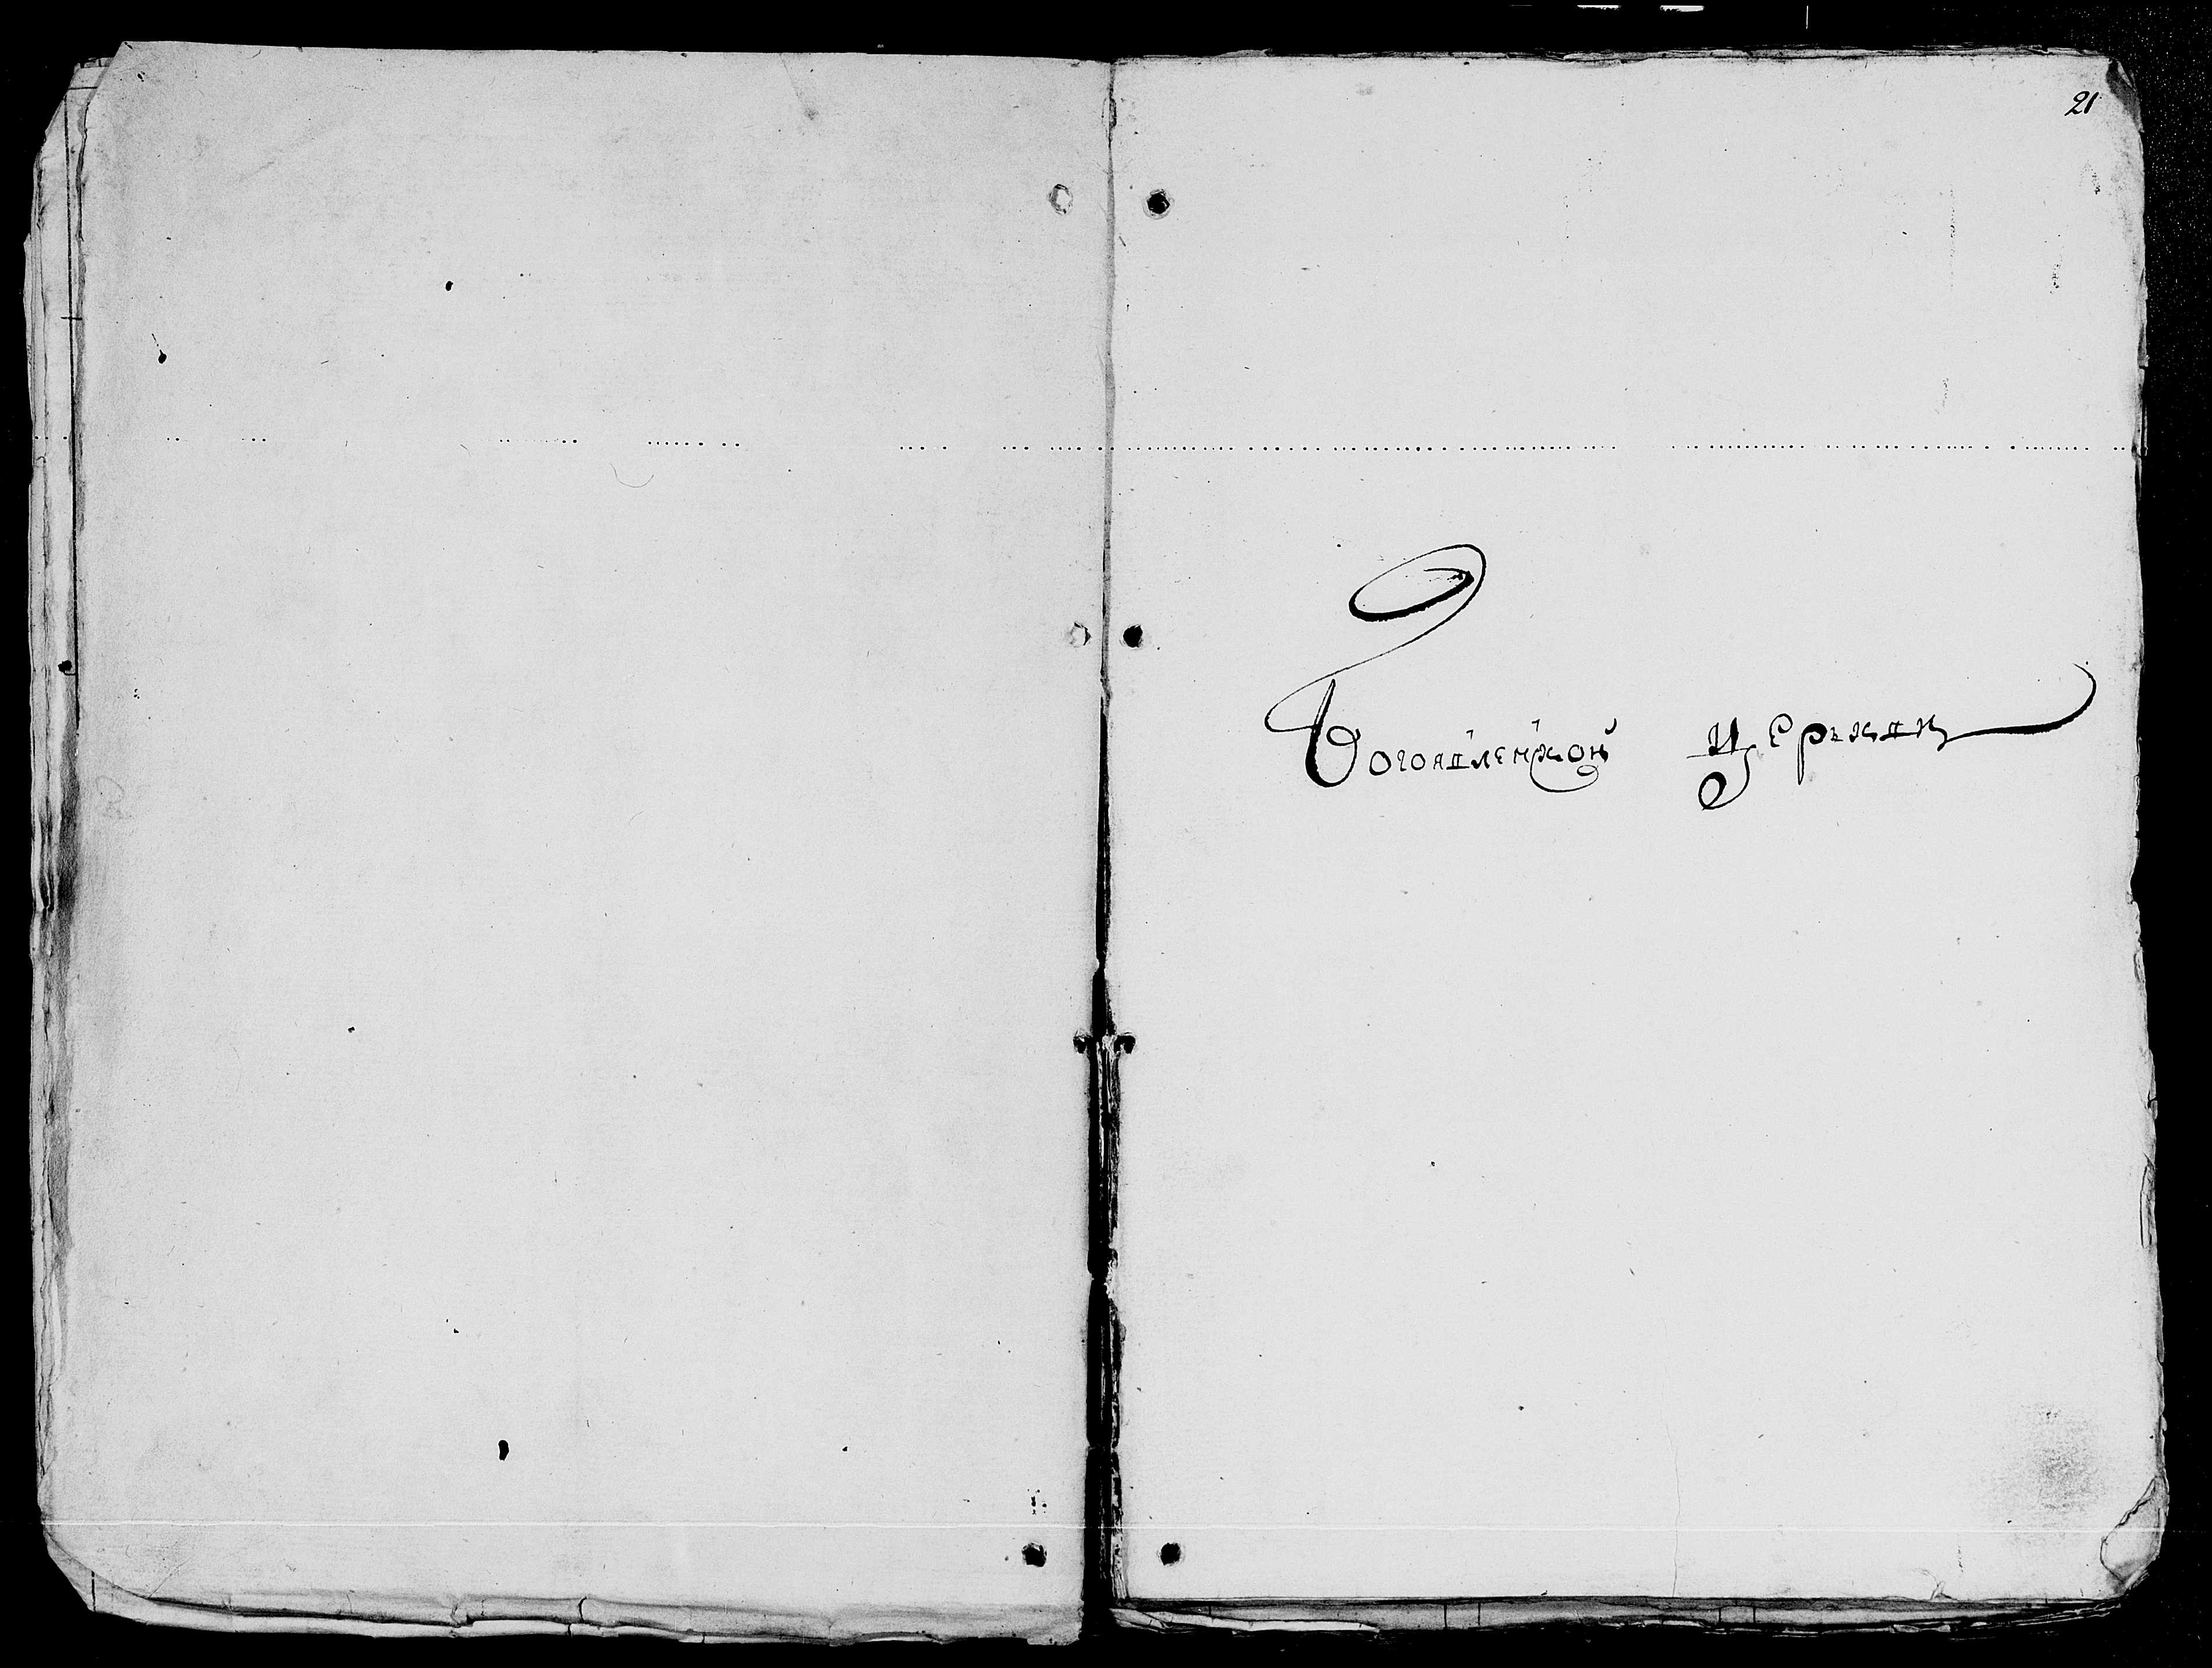 21
Богоявленской церькви